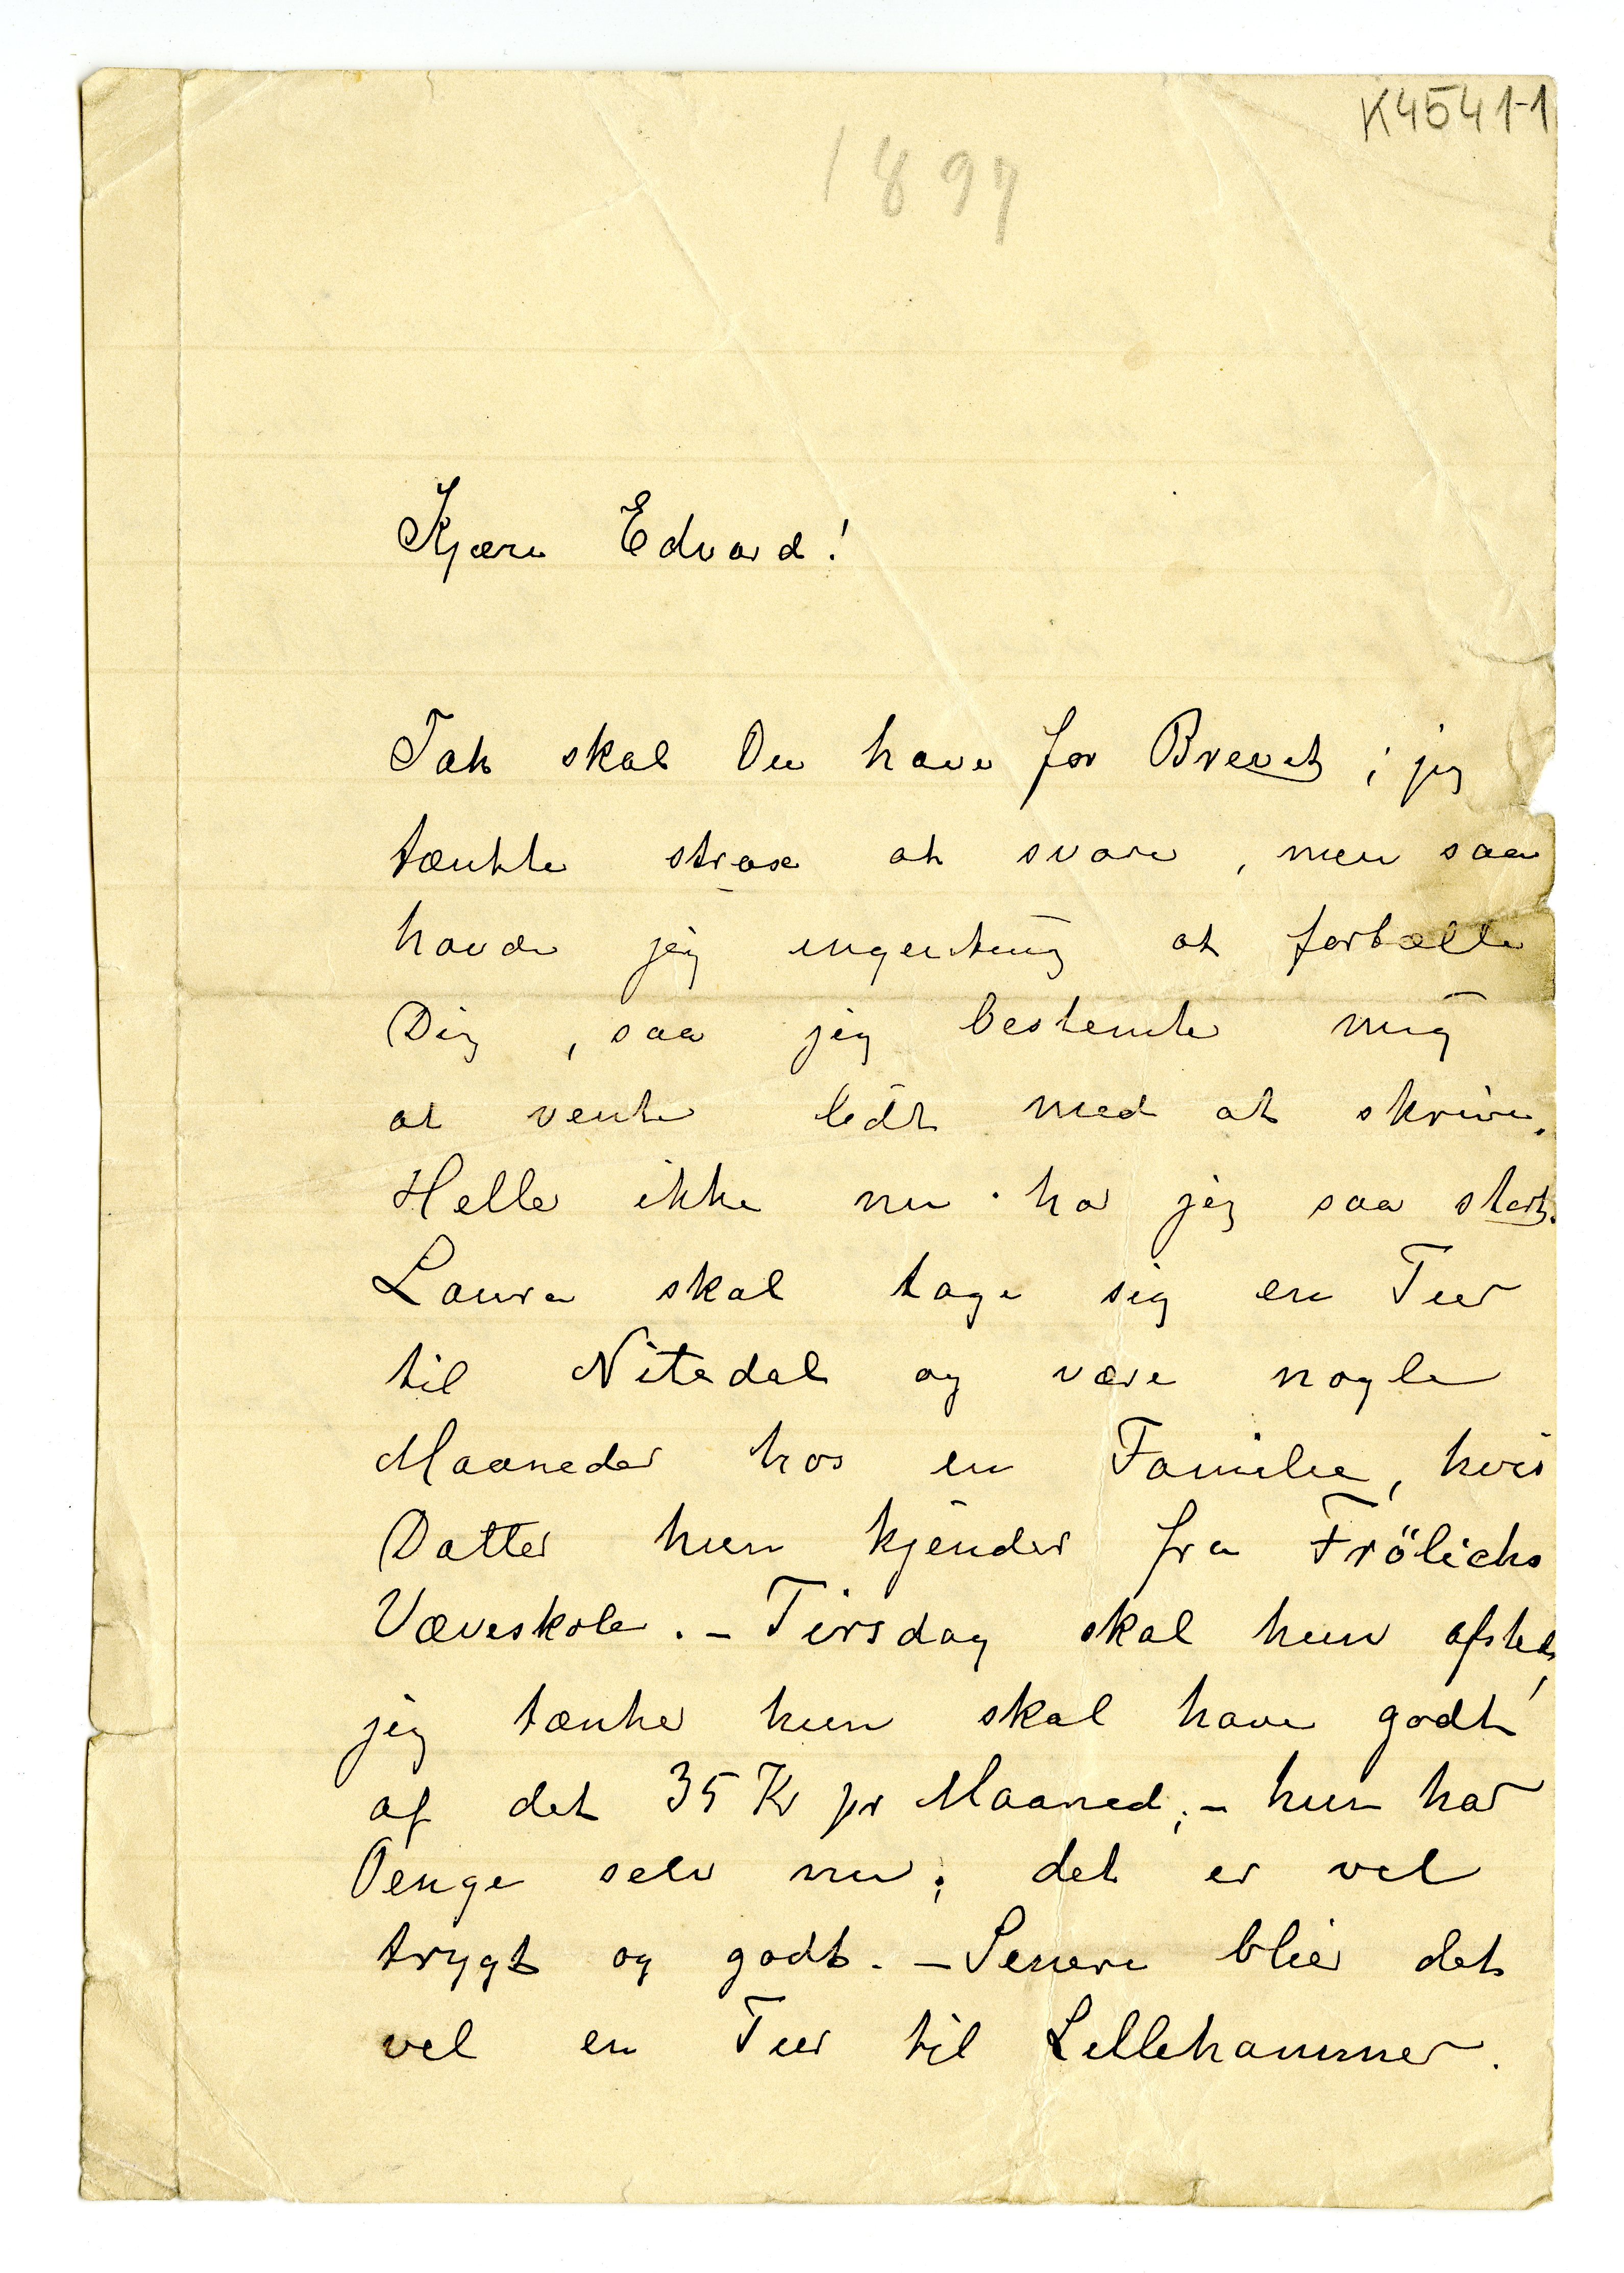 K4541-1
1897
Kjære Edvard!
Tak skal Du have for Brevet; jeg
tænkte strax at svare, men saa
havde jeg ingenting at fortælle
Dig, saa jeg bestemte mig
at vente lidt med at skrive.
Heller ikke nu har jeg saa stort.
Laura skal tage sig en Tur
til Nitedal og være nogle
Maaneder hos en Familie, hvis
Datter hun kjender fra Frölichs
Væveskole. – Tirsdag skal hun afsted,
jeg tænker hun skal have godt
af det 35 Kr pr Maaned; – hun har
Penge selv nu; det er vel
trygt og godt. – Senere blir det
vel en Tur til Lillehammer.